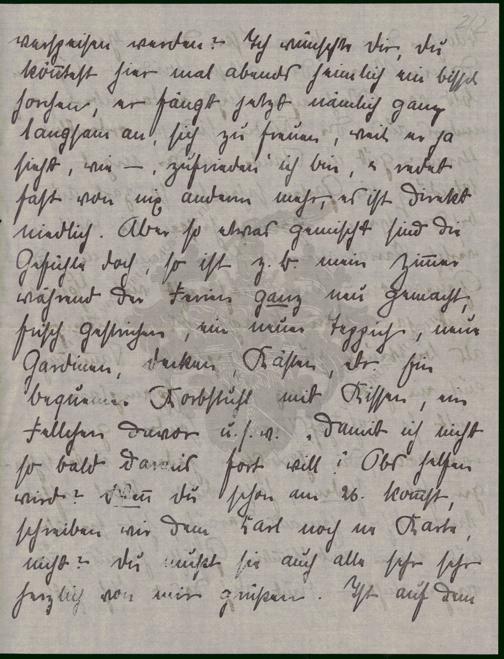 verspeisen werden? Ich wünschte dir, du
könntest hier mal abends heimlich ein bissel
horchen, er fängt jetzt nämlich ganz
langsam an, sich zu freuen, weil er ja
sieht, wie —, zufrieden' ich bin, u redet
fast von nix anderm mehr, es ist direkt
niedlich. Aber so etwas gemischt sind die
Gefühle doch, so ist z. b. mein Zimmer
während der Ferien ganz neu gemacht,
frisch gestrichen, ein neuer Teppich, neue
Gardinen, Decken, Kästen, etc. Ein
bequemer Korbstuhl mit Kissen, ein
Fellchen davor u.s.w. „damit ich nicht
so bald damis fort will"! Obs helfen
wird? Wenn du schon am 26. kommst,
schreiben wir dem Karl noch ne Karte,
nicht? Du mußt sie auch alle sehr sehr
herzlich von mir grüßen. Ist auf dem